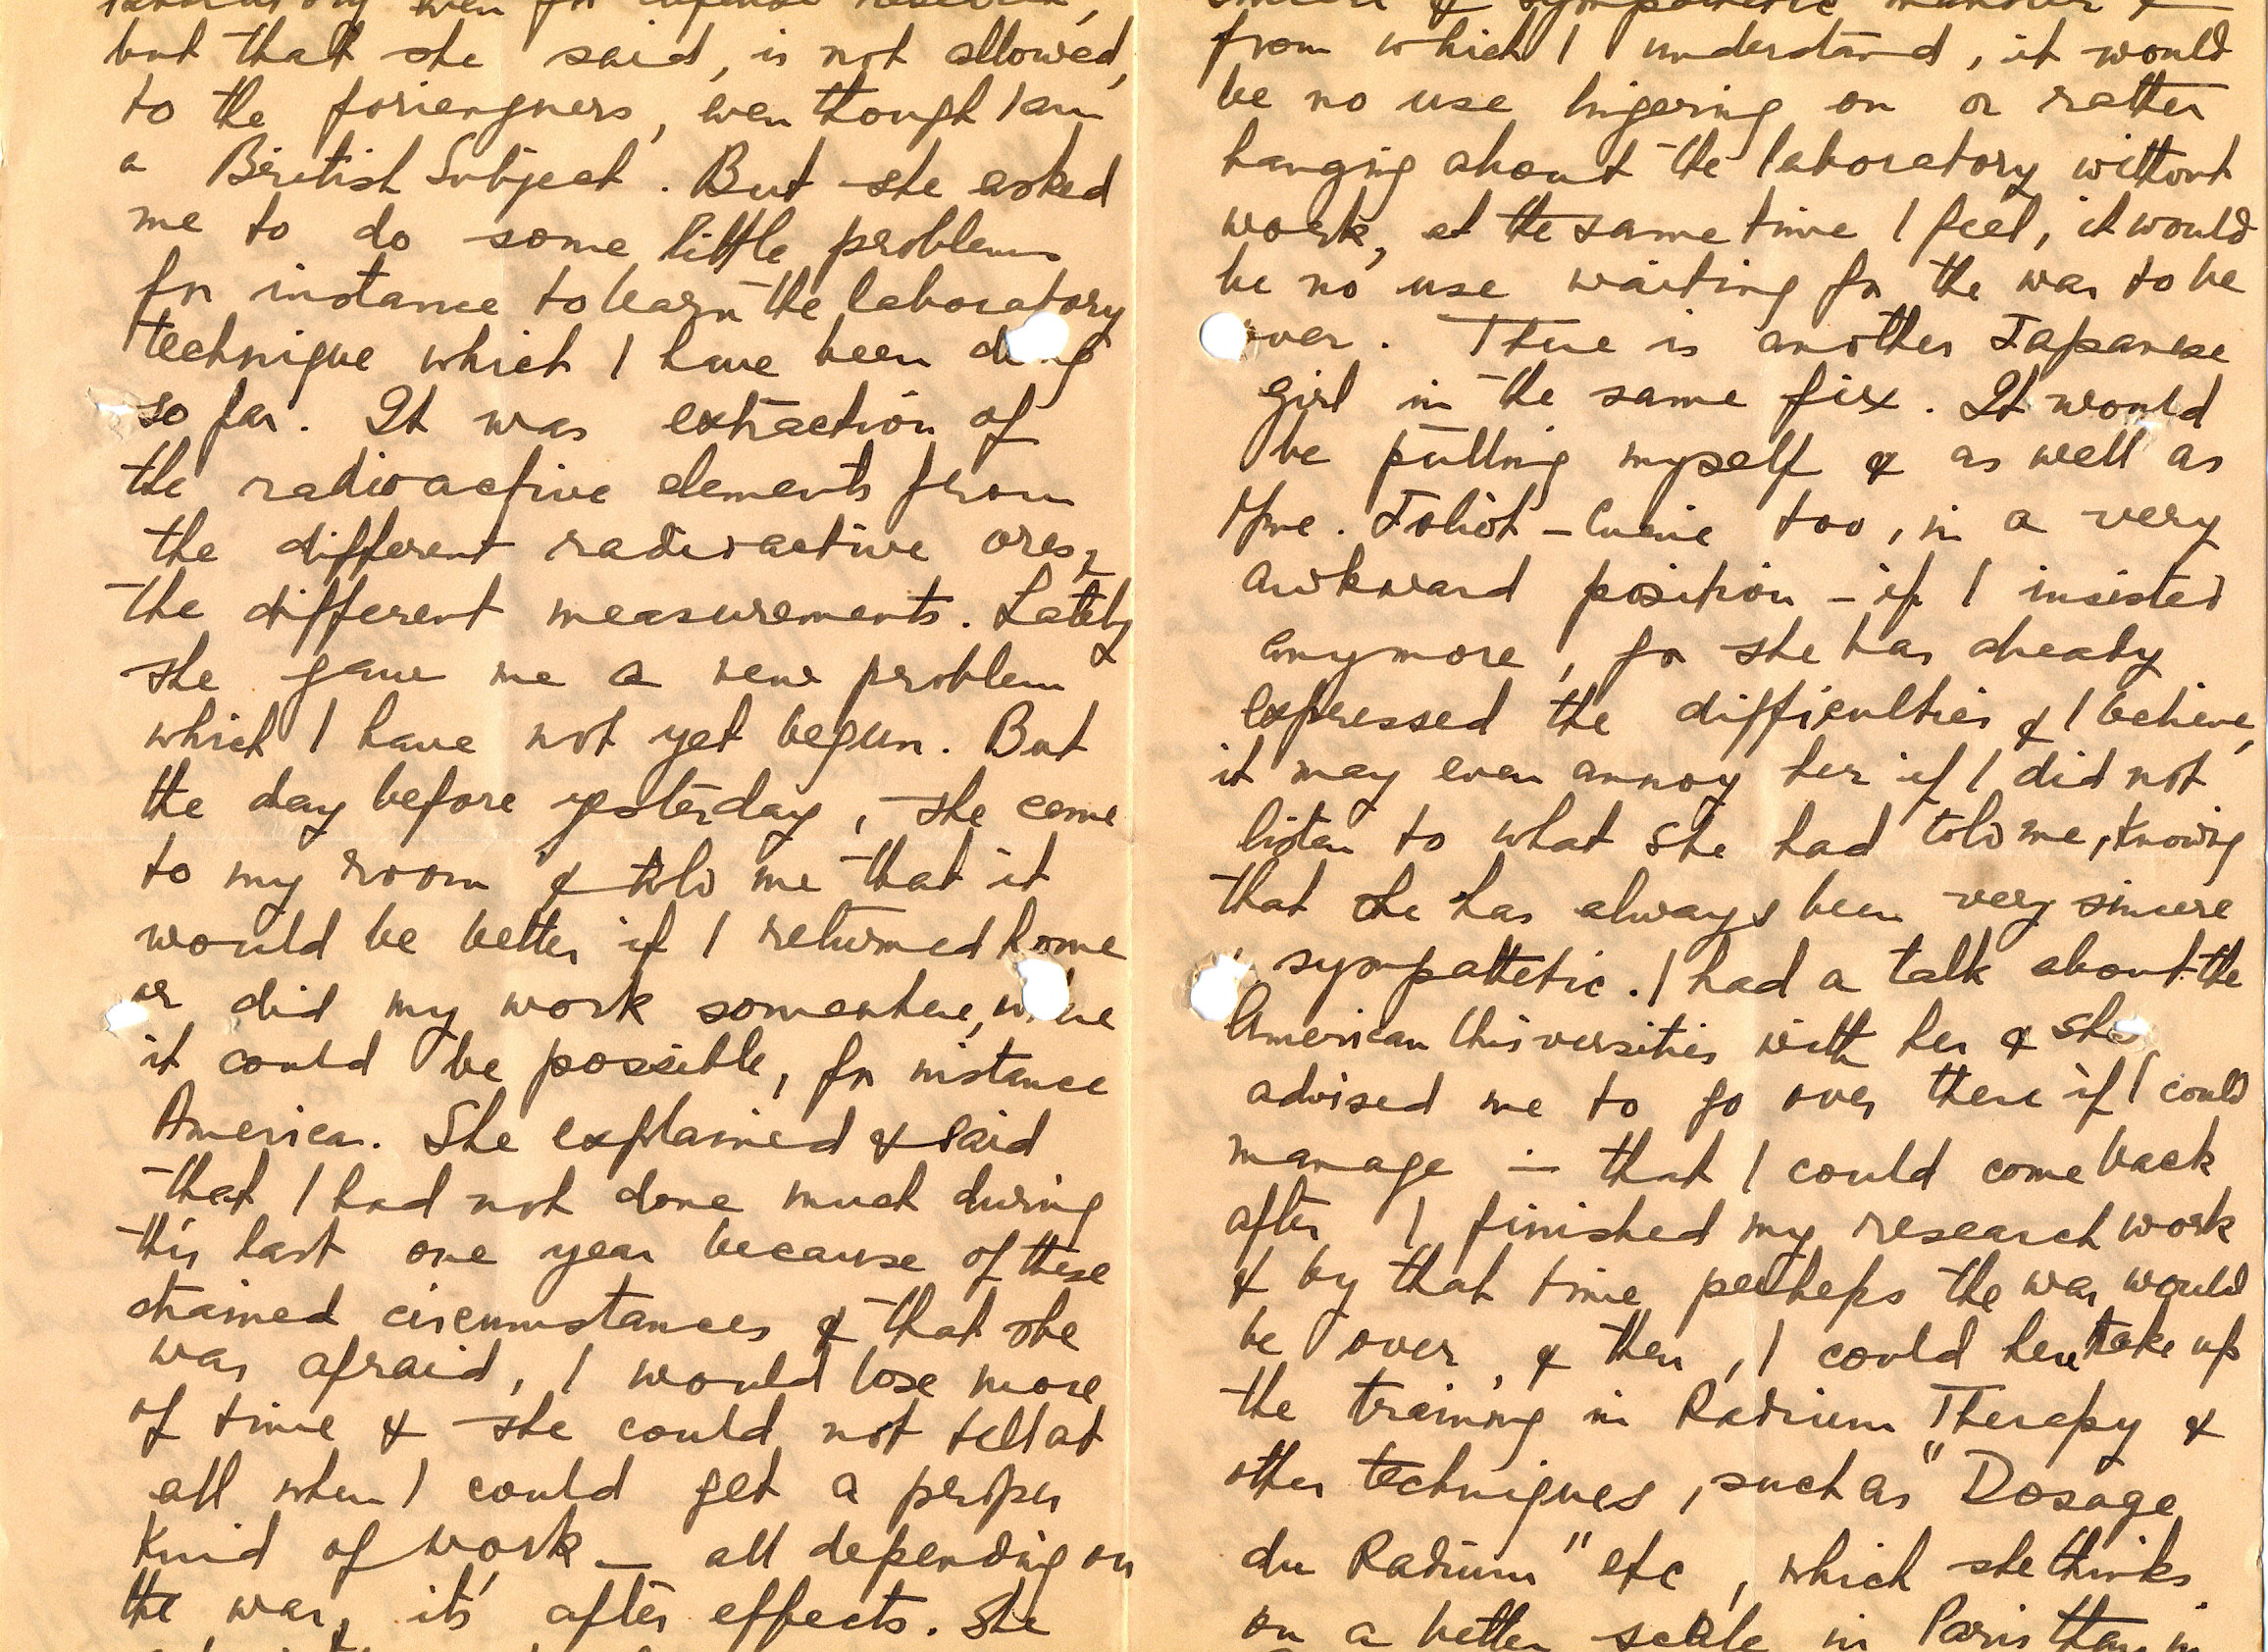 laboratory even for defense research,
but that she said, is not allowed,
to the foriengners, even though I am
a British Subject. But she asked
me to do some little problems
for instance to learn the laboratory
technique which I have been doing
so far. It was extraction of
the radioactive elements from
the different radioactive ores, &
the different measurements. Lately
she gave me a new problem
which I have not yet begun. But
the day before yesterday, she came
to my room & told me that it
would be better if I returned home
or did my work somewhere, where
it could be possible, for instance
America. She explained & said
that I had not done much during
this last one year because of these
strained circumstances & that she
was afraid, I would lose more
of time & she could not tell at
all when I could get a proper
kind of work — all depending on
the war, its' after effects. She
sincere & sympathetic manner &
from which I understand, it would
be no use lingering on or rather
hanging about the laboratory without
work, at the same time I feel, it would
be no use waiting for the war to be
over. There is another Japanese
girl in the same fix. It would
be putting myself & as well as
Mme. Joliot-Curie too, in a very
awkward position - if I insisted
anymore, for she has already
expressed the difficulties & I believe,
it may even annoy her if I did not
listen to what she had told me, knowing
that she has always been very sincere
& sympathetic. I had a talk about the
American Universities with her & she
advised me to go over there if I could
manage — that I could come back
after I finished my research work
& by that time perheps the war would
be over, & then, I could here take up
the training in Radium Therapy &
other techniques, such as "Dosage
du Radium" etc, which she thinks
on a better scale in Paris than in